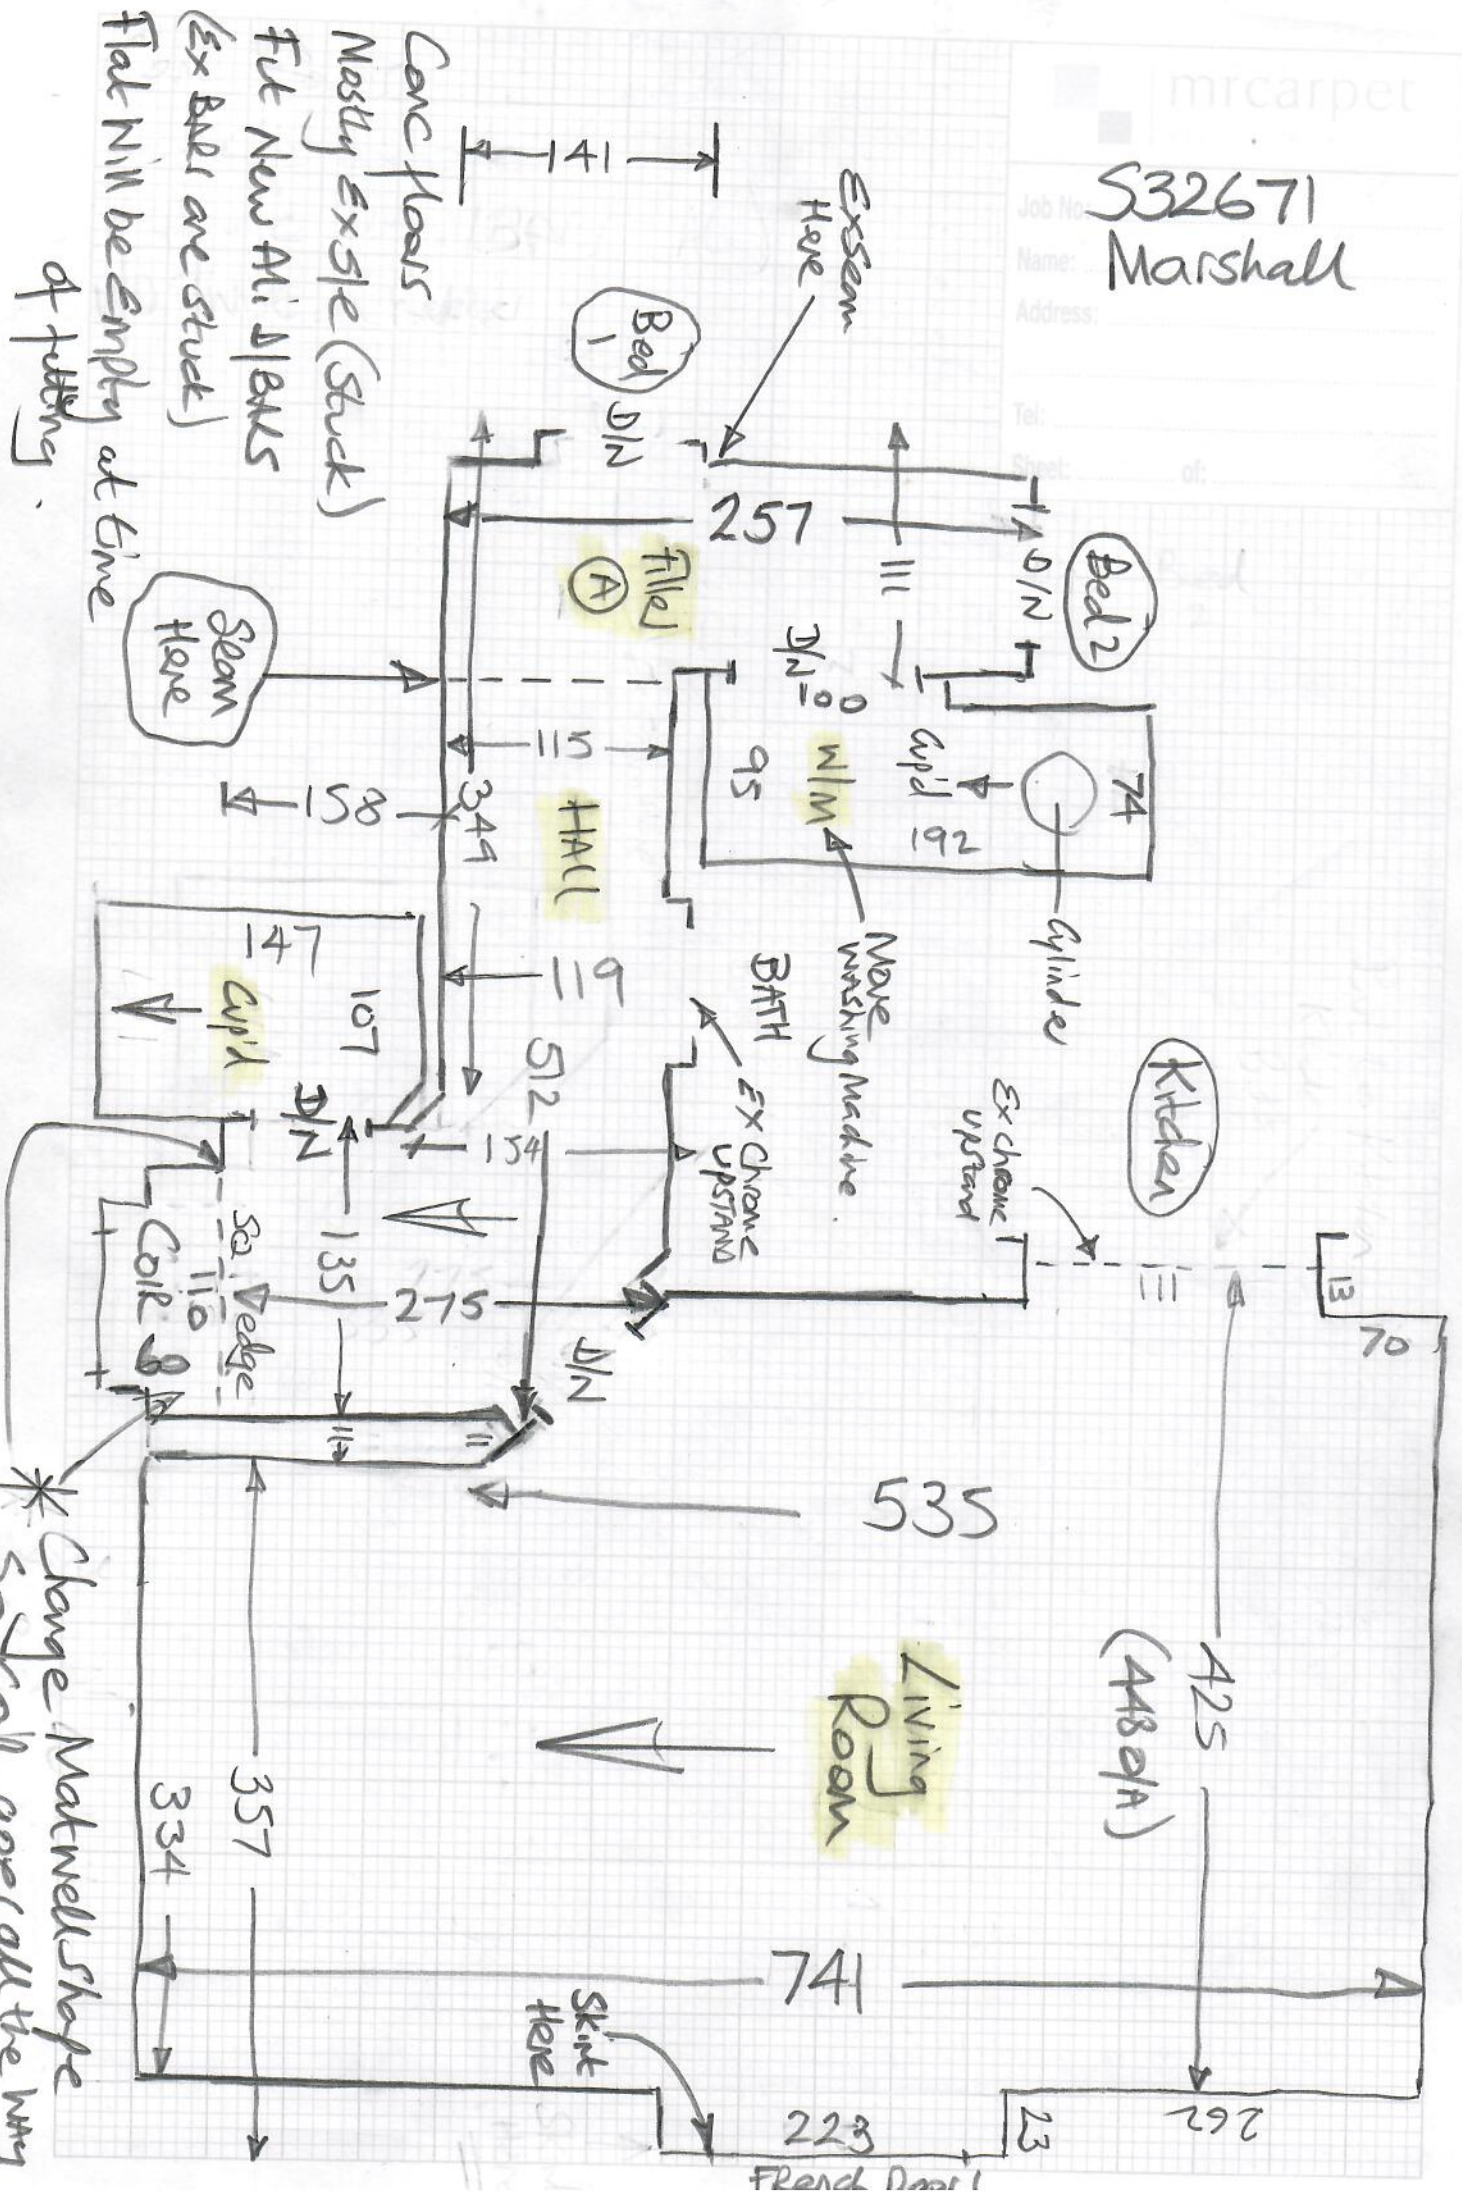 mrcarpet
Job No:
S32671
Name:
Marshall
Address:
Tel:
Sheet:
of:
Conc floors
Mostly Ex S/e (Stuck)
Fit New Ali D/BARS
(Ex BARS are stuck)
Flat Will be Empty at time
of fitting.
141
Ex Seam
Here
Bed
1
D/N
257
111
Bed 2
D/N
Filler
A
Seam
Here
115
349
HALL
158
D/N
W/M
95
Cup'd
192
74
Cylinder
Move
Washing Machine
BATH
119
512
147
107
Cup'd
D/N
154
Ex Chrome
UPSTAND
Kitchen
Ex Chrome
Upstand
111
13
70
135
275
D/N
Sq edge
110
COIR
11
11
535
425
(448 O/A)
Living
Room
357
334
741
Skirt
Here
223
23
262
French Door
* Change Matwell Shape